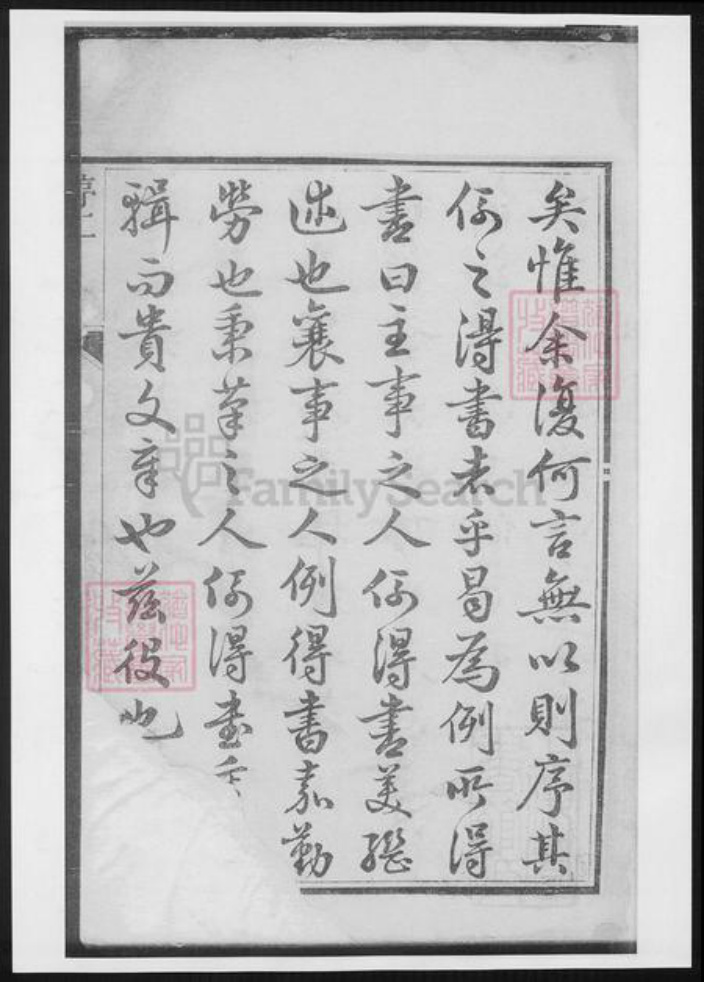 矣惟余復何言無以則序其
例之得書者乎曷為例所得
書曰主事之人例得書美繼
述也襄事之人例得書嘉勤
勞也秉筆之人例得書重
輯而貴文章也茲役也
序二
FamilySearch